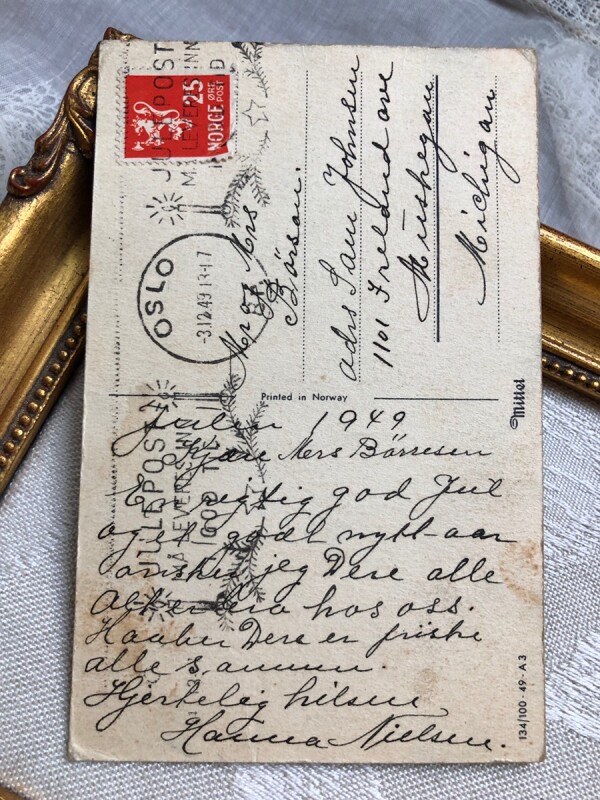 NORGE
25
ØRE
POST
JULEPOST
OSLO
-3.12.49 13-17
JULEPOST
MÅ LEVERES INN
GOD TID
Mr og Mrs
Børson.
adrs Sam Johnsen
1101 Ireland ave
Muskegan
Michigan
Printed in Norway
Mittet
Julen 1949
Kjære Mrs Børresen
En rigtig god Jul
og et godt nytt-aar
ønsker jeg Dere alle
Alt er bra hos oss.
Haaber Dere er friske
alle sammen.
Hjertelig hilsen
Hanna Nielsen.
134/100-49-A3